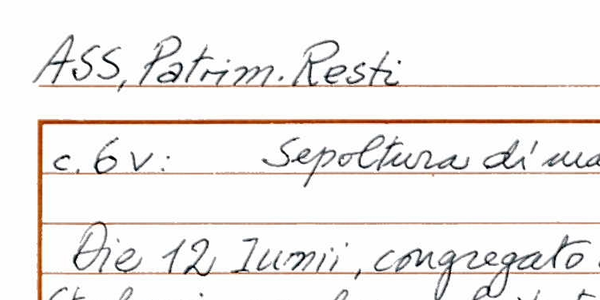 ASS, Patrim. Resti
c. 6v: Sepoltura di
Die 12 Iunii, congregato